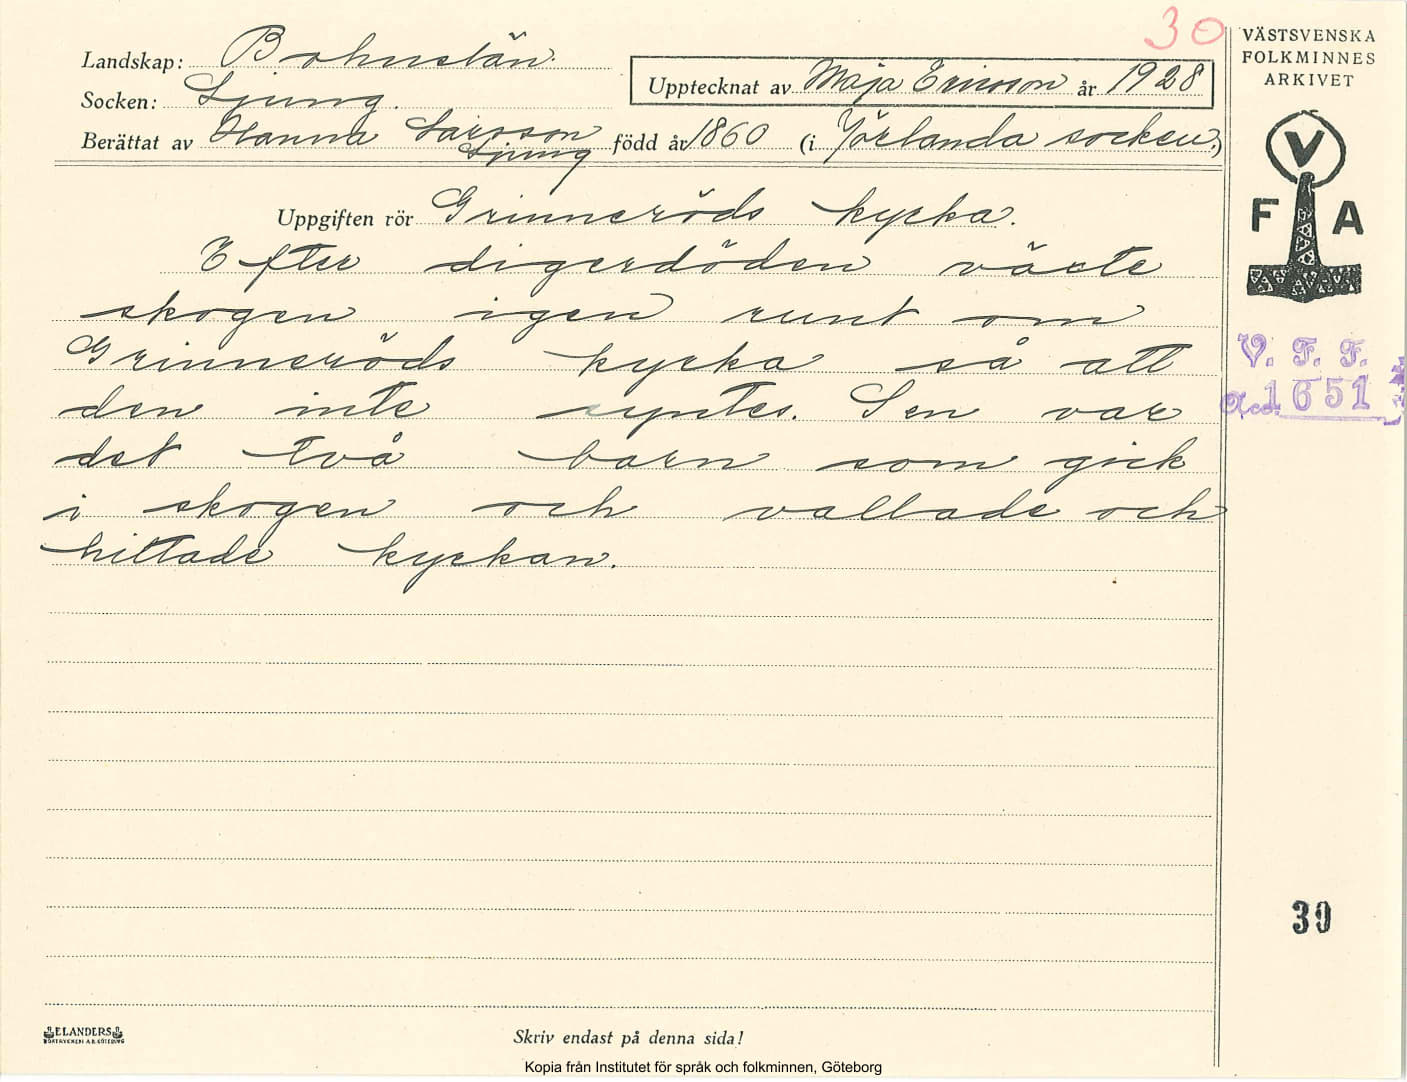 30
VÄSTSVENSKA
FOLKMINNES
ARKIVET
Landskap: Bohuslän.
Upptecknat av Maja Ericsson år 1928
Socken: Ljung.
Berättat av Hanna Larsson född år 1860 (i Jörlanda socken.)
Ljung
V
F A
Uppgiften rör Grinneröds kyrka.
Efter digerdöden växte
skogen igen runt om
Grinneröds kyrka så att
den inte syntes. Sen var
det två barn som gick
i skogen och vallade och
hittade kyrkan.
V. F. F.
Acc. 1651
39
ELANDERS
BOKTRYCKERI A.B. GÖTEBORG
Skriv endast på denna sida!
Kopia från Institutet för språk och folkminnen, Göteborg